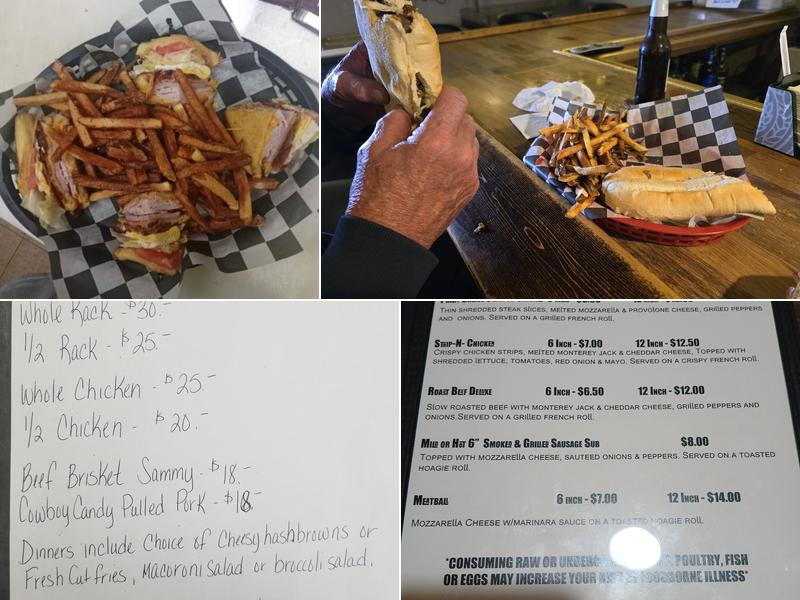 Whole Rack - $30.-
1/2 Rack - $25.-
Whole Chicken - $25.-
1/2 Chicken - $20.-
Beef Brisket Sammy - $18.-
Cowboy Candy Pulled Pork - $18.-
Dinners include Choice of Cheesy hashbrowns or
Fresh Cut fries, Macaroni Salad or broccoli salad.
Thin shredded steak slices, melted mozzarella & provolone cheese, grilled peppers
and onions. Served on a grilled French roll.
Strip-N- Chicken 6 Inch - $7.00 12 Inch - $12.50
Crispy chicken strips, melted Monterey Jack & cheddar cheese, Topped with
shredded lettuce, tomatoes, red onion & mayo. Served on a crispy French roll.
Roast Beef Deluxe 6 Inch - $6.50 12 Inch - $12.00
Slow roasted beef with Monterey Jack & cheddar cheese, grilled peppers and
onions.Served on a grilled French roll.
Mild or Hot 6" Smoked & Grilled Sausage Sub $8.00
Topped with mozzarella cheese, sauteed onions & peppers. Served on a toasted
hoagie roll.
Meatball 6 inch - $7.00 12 Inch - $14.00
Mozzarella Cheese w/marinara sauce on a toasted hoagie roll.
*CONSUMING RAW OR POULTRY, FISH
OR EGGS MAY INCREASE YOUR ILLNESS*